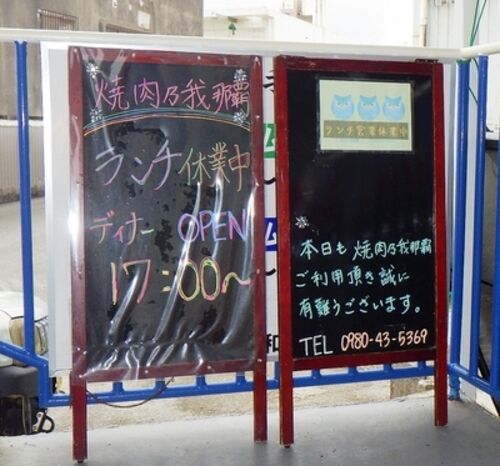 焼肉乃我那覇
ランチ休業中
ディナー OPEN
17:00～
ランチ営業休業中
本日も焼肉乃我那覇
ご利用頂き誠に
有難うございます。
TEL 0980-43-5369